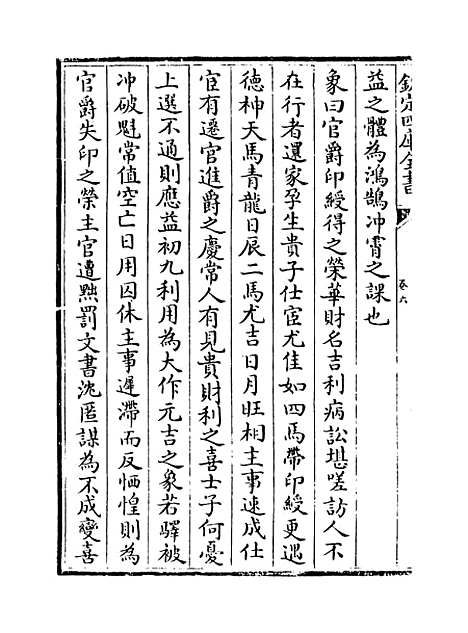 欽定四庫全書
卷六
益之體為鴻鵠冲霄之課也
象曰官爵印綬得之榮華財名吉利病訟堪嗟訪人不
在行者還家孕生貴子仕宦尤佳如四馬帶印綬更遇
德神天馬青龍日辰二馬尤吉日月旺相主事速成仕
宦有遷官進爵之慶常人有見貴財利之喜士子何憂
上選不通則應益初九利用為大作元吉之象若驛被
冲破魁常值空亡日用囚休主事遲滯而反恓惶則為
官爵失印之榮主官遭黜罰文書沈匿謀為不成變喜